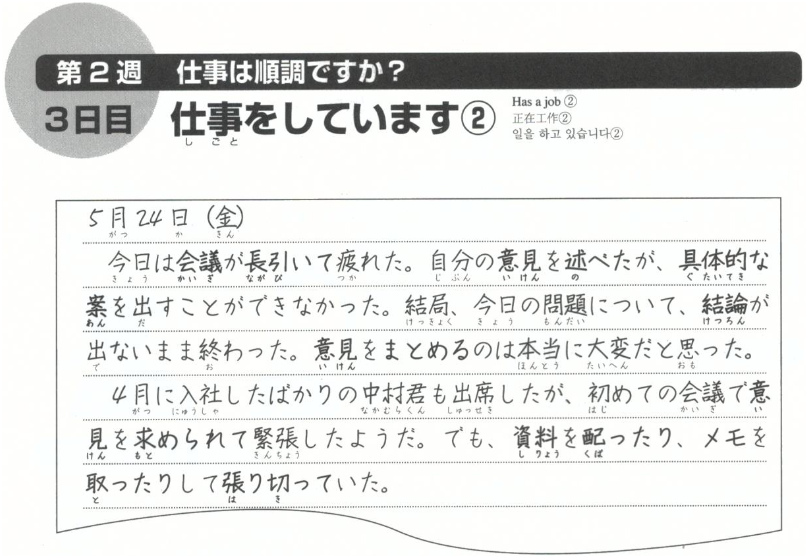 第2週 仕事は順調ですか？
3日目 仕事をしています②
しごと
Has a job ②
正在工作②
일을 하고 있습니다②
5月24日（金）
がつ か きん
今日は会議が長引いて疲れた。自分の意見を述べたが、具体的な
きょう かいぎ ながび つか じぶん いけん の ぐたいてき
案を出すことができなかった。結局、今日の問題について、結論が
あん だ けっきょく きょう もんだい けつろん
出ないまま終わった。意見をまとめるのは本当に大変だと思った。
で お いけん ほんとう たいへん おも
4月に入社したばかりの中村君も出席したが、初めての会議で意
がつ にゅうしゃ なかむらくん しゅっせき はじ かいぎ い
見を求められて緊張したようだ。でも、資料を配ったり、メモを
けん もと きんちょう しりょう くば
取ったりして張り切っていた。
と は き